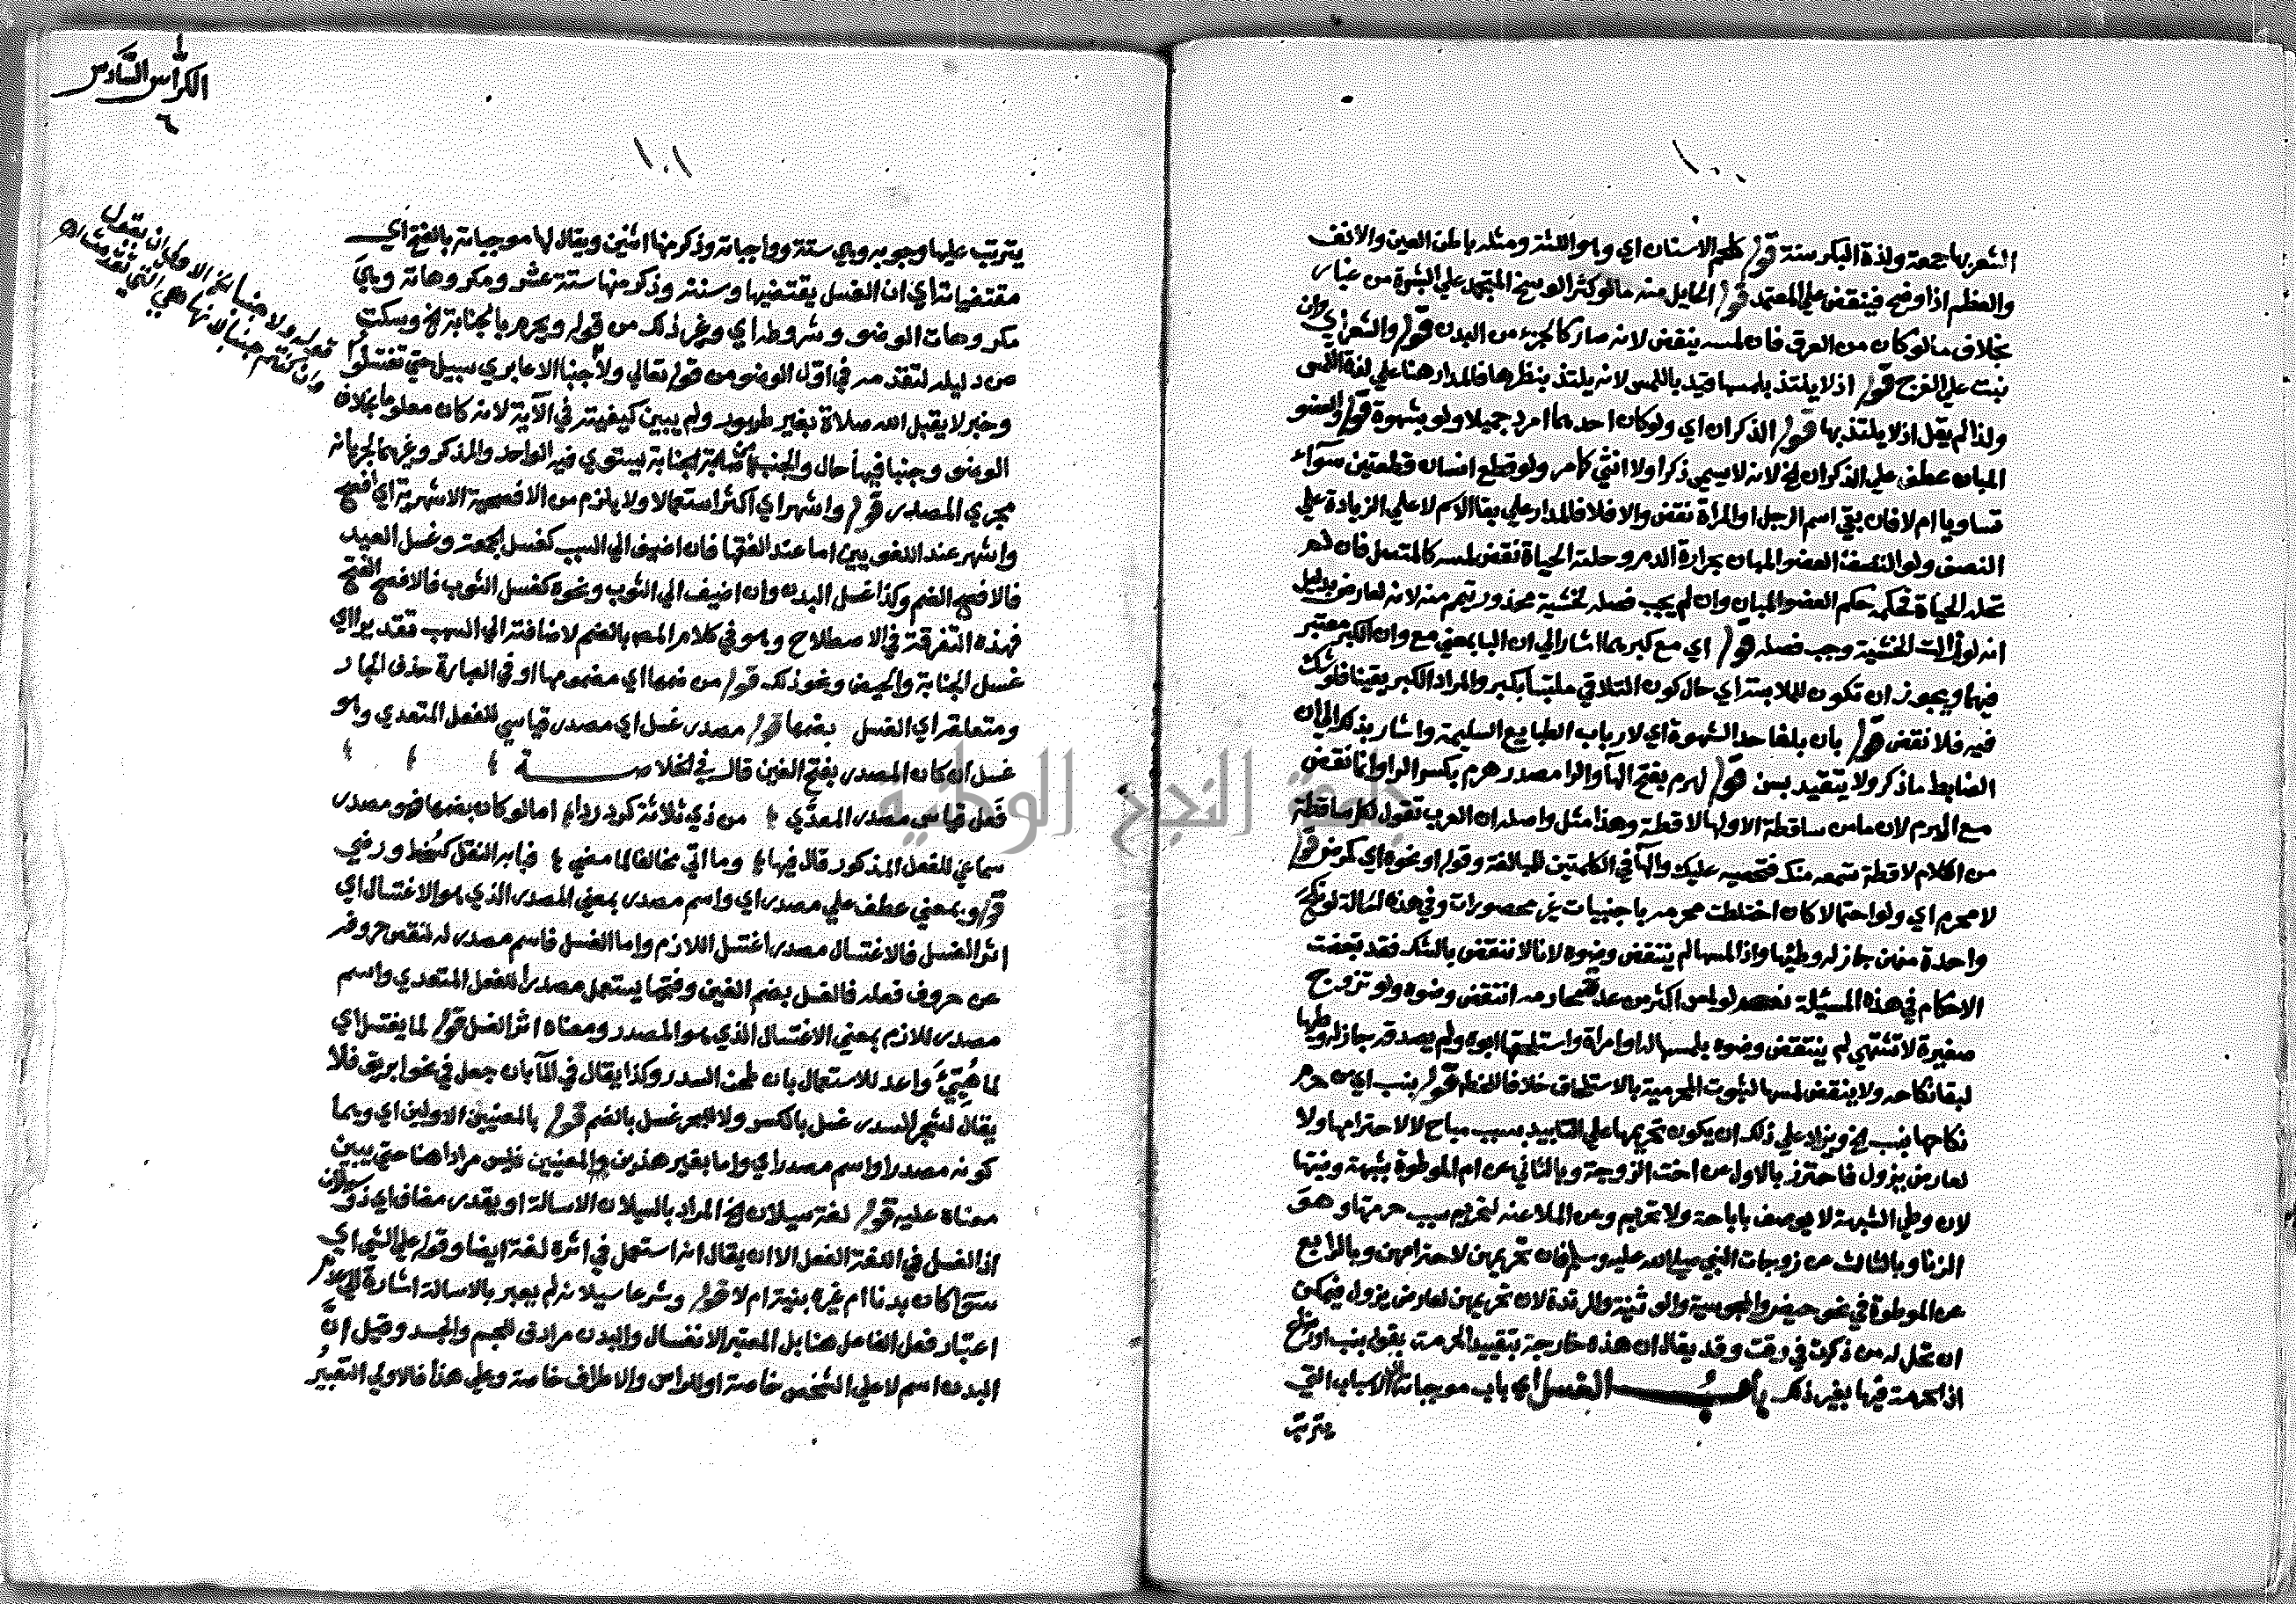 ١٠٠
الشعر بها جمعة ولذة البكر سنة قوله كلحم الاسنان اي وهو اللثة ومثله باطن العين والانف
والعظم اذا وضح فينقض على المعتمد قوله الحايل منه مالو كثر الوسخ المتجمد علي البشرة من غبار
بخلاف مالو كان من العرق فان لمسه ينقض لانه صار كالجزء من البدن قوله والشعر اي وان
نبت علي الفرج قوله اذ لا يلتذ بلمسها قيد باللمس لانه يلتذ بنظرها فالمدار هنا علي لذة اللمس
ولذا لم يقل اذ لا يلتذ بها قوله الذكران اي ولو كان احدهما امرد جميلا ولو بشهوة قوله والعضو
المبان عطف علي الذكران الخ لانه لا يسمي ذكرا ولا انثي كامر ولو قطع انسان قطعتين سواء
تساويا ام لا فان بقي اسم الرجل او المرأة نقض والا فلا فالمدار علي بقا الاسم لا علي الزيادة علي
النصف ولو التصق العضو المبان بحرارة الدم وحلته الحياة نقض لمسه كالمتصل فان لم
تحله الحياة فحكمه حكم العضو المبان وان لم يجب فصله لخشية محذور تيمم منه لانه لعارض بدليل
انه لو زالت الخشية وجب فصله قوله اي مع كبرهما اشار الي ان البا بمعني مع وان الكبر معتبر
فيهما ويجوز ان تكون للملابسة اي حال كون التلاقي ملتبسا بكبر والمراد الكبر يقينا فلو شك
فيه فلا نقض قوله بان بلغا حد الشهوة اي لارباب الطبايع السليمة واشار بذلك الي ان
الضابط ما ذكر ولا يتقيد بسن قوله لهرم بفتح الها والرا مصدر هرم بكسر الرا وانما نقض
مع الهرم لان ما من ساقطة الا ولها لاقطة وهذا مثل واصله ان العرب تقول لكل ساقطة
من الكلام لاقطة تسمعه منك فتحصيه عليك والها في الكلمتين للمبالغة وقوله او نحوه اي كمرض قوله
لا محرم اي ولو احتمالا كان اختلطت محرمه باجنبيات غير محصورات وفي هذه الحالة لو نكح
واحدة منهن جاز له وطئها واذا لمسها لم ينتقض وضوه لانا لا ننقض بالشك فقد تبعضت
الاحكام في هذه المسئلة نعم لو لمس اكثر من عدد محارمه انتقض وضوه ولو تزوج
صغيرة لا تشتهي لم ينتقض وضوه بلمسها او امراة واستلحقها ابوه ولم يصدقه جاز له وطيها
لبقا نكاحه ولا ينقض لمسها لثبوت المحرمية بالاستلحاق قوله بنسب اي من حرم
نكاحها بنسب الخ ويزاد علي ذلك ان يكون تحريمها علي التابيد بسبب مباح لا لاحترامها ولا
لعارض يزول فاحترز بالاول عن اخت الزوجة وبالثاني عن ام الموطوءة بشبهة وبنتها
لان وطي الشبهة لا يوصف باباحة ولا تحريم وعن الملاعنة لتحريم سبب حرمتها وهو
الزنا وبالثالث عن زوجات النبي صلي الله عليه وسلم فان تحريمهن لاحترامهن وبالرابع
عن الموطوءة في نحو حيض والمجوسية والوثنية والمرتدة لان تحريمهن لعارض يزول فيمكن
ان تحل له من ذكرت في وقت وقد يقال ان هذه خارجة بتقييد الحرمة بقوله بنسب او رضاع
اذ الحرمة فيها بغير ذلك باب الغسل اي باب موجباته الاسباب التي
يترتب
الكراس السادس
٦
١٠١
يترتب عليها وجوبه وهي ستة وواجباته وذكر منها اثنين ويقال لها موجباته بالفتح اي
مقتضياته اي ان الغسل يقتضيها وسننه وذكر منها ستة عشر ومكروهاته وهي
مكروهات الوضوء وشروطه اي وغير ذلك من قوله ويحرم بالجنابة الخ وسكت
من دليله لتقدمه في اول الوضو من قوله تعالي ولا جنبا الا عابري سبيل حتي تغتسلوا
وخبر لا يقبل الله صلاة بغير طهور ولم يبين كيفيته في الآية لانه كان معلوما بخلاف
الوضو وجنبا فيها حال والجنب من الجنابة يستوي فيه الواحد والمذكر وغيرهما لجريانه
مجري المصدر قوله واشهر اي اكثر استعمالا ولا يلزم من الافصحية الاشهرية اي افصح
واشهر عند اللغويين اما عند الفقها فان اضيف الي السبب كغسل الجمعة وغسل العيد
فالافصح الضم وكذا غسل البدن وان اضيف الي الثوب ونحوه كغسل الثوب فالافصح الفتح
فهذه التفرقة في الاصطلاح وهو في كلام المص بالضم لاضافته الي السبب تقديرا اي
غسل الجنابة والحيض ونحو ذلك قوله من ضمها اي مضمومها او في العبارة حذف الجار
ومتعلقه اي الغسل بضمها قوله مصدر غسل اي مصدر قياسي للفعل المتعدي وهو
غسل ان كان المصدر بفتح الغين قال في الخلاصة
فعل قياس مصدر المعدي من ذي ثلاثة كرد ردا اما لو كان بضمها فهو مصدر
سماعي للفعل المذكور قال فيها وما اتي مخالفا لما مضي فبابه النقل كسخط ورضي
قوله وبمعني عطف علي مصدر اي واسم مصدر بمعني المصدر الذي هو الاغتسال اي
اثر الغسل فالاغتسال مصدر اغتسل اللازم واما الغسل فاسم مصدر له لنقص حروفه
عن حروف فعله فالغسل بضم الغين وفتحها يستعمل مصدرا للفعل المتعدي واسم
مصدر للازم بمعني الاغتسال الذي هو المصدر ومعناه اثر الغسل قوله لما يغتسل اي
لما هُيِّئَ واعد للاستعمال بان طحن السدر وكذا يقال في الما بان جعل في نحو ابريق فلا
يقال لشجر السدر غسل بالكسر ولا للبحر غسل بالضم قوله بالمعنيين الاولين اي وهما
كونه مصدرا واسم مصدر اي واما بغير هذين المعنيين فليس مرادا هنا حتي يبين
معناه عليه قوله لغة سيلان الخ المراد بالسيلان الاسالة او يقدر مضاف اي ذو سيلان
اذ الغسل في اللغة الفعل الا ان يقال انه استعمل في اثره لغة ايضا وقوله علي الشي اي
سوا كان بدنا ام غيره بنية ام لا قوله وشرعا سيلانه لم يعبر بالاسالة اشارة الي عدم
اعتبار فعل الفاعل هنا بل المعتبر الانغسال والبدن مرادف للجسم والجسد وقيل انّ
البدن اسم لاعلي الشخص خاصة او للراس والاطراف خاصة وعلي هذا فالاولي التعبير
قوله ولا جنبا الاولي ان يقول
وان كنتم جنبا لانها هي التي تقدمت